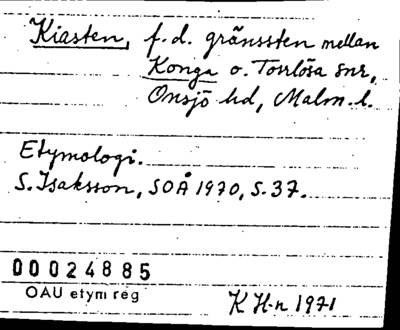 Kiasten, f.d. gränssten mellan
Konga o. Torrlösa snr,
Onsjö hd, Malm. l.
Etymologi.
S. Isaksson, SOÅ 1970, s. 37.
00024885
OAU etym reg
K H-n 1971